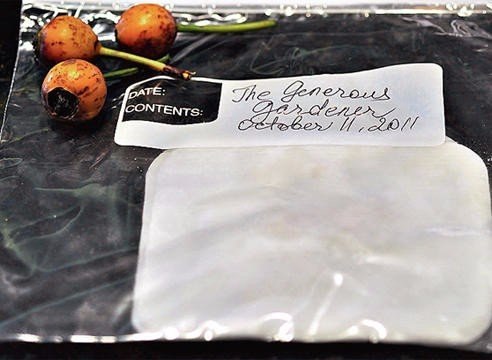 DATE:
CONTENTS:
The Generous
Gardener
October 11, 2011